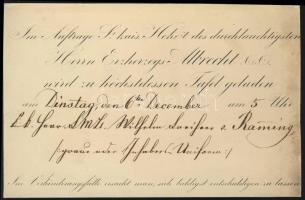 Im Auftrage Sr. kais. Hoheit des durchlauchtigsten
Herrn Erzherzogs Albrecht
wird zu höchstdessen Tafel geladen
am Dinstag, den 6ten December um 5 Uhr
k.k. Herr F.M.L. Wilhelm Freiherr v. Raming
graue oder Inhabers Uniform
Im Verhinderungsfalle ersucht man, sich baldigst entschuldigen zu lassen